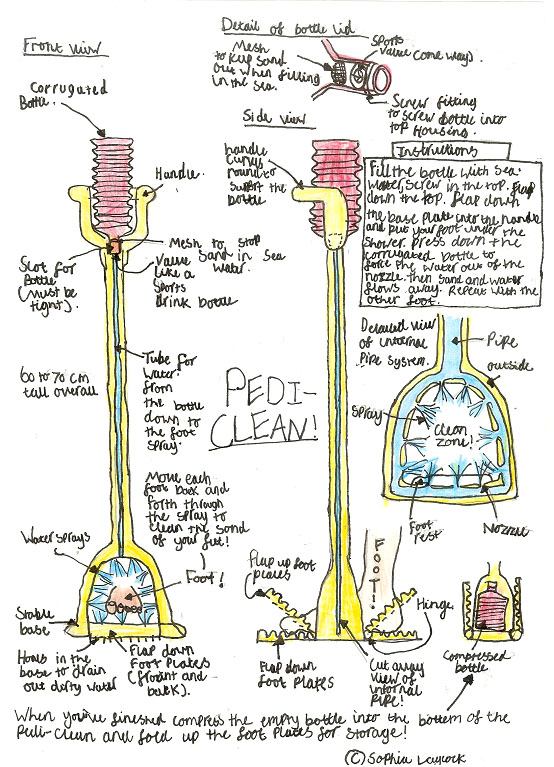 Front view
Corrugated
Bottle.
Handle.
Slot for
Bottle
(must be
tight).
Mesh to stop
Sand in Sea
water.
Valve
like a
Sports
drink bottle
60 to 70 cm
tall overall
Tube for
water
from
the bottle
down to
the foot
Spray.
Move each
foot back and
forth through
the spray to
clean the sand
of your feet!
Water sprays
Foot!
Stable
base
Holes in the
base to drain
out dirty water
Flap down
Foot Plates
(front and
back).
PEDI-
CLEAN!
Detail of bottle lid
Mesh
to keep sand
out when filling
in the sea.
Sports
valve (one way).
Screw fitting
to screw bottle into
top housing.
Side view
handle
curves
round to
support the
bottle
Flap up foot
plates
Flap down
foot plates
FOOT!
Hinge
Cut away
view of
internal
Pipe!
Compressed
bottle
Instructions
Fill the bottle with sea
water, screw in the top. flap
down the top. flap down
the base plate into the handle
and put your foot under the
shower. press down the
corrugated bottle to
force the water out of the
nozzle. then sand and water
flows away. Repeat with the
other foot.
Detailed view
of internal
Pipe system.
Pipe
outside
Spray
Clean
zone!
Foot
rest
Nozzle
When you've finished compress the empty bottle into the bottom of the
Pedi-Clean and fold up the foot plates for storage!
© Sophia Laycock